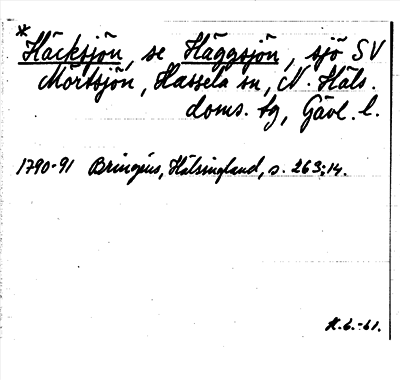 *
Häcksjön, se Häggsjön, sjö SV
Mörtsjön, Hassela sn, N. Häls.
doms. tg, Gävl. l.
1790-91 Bringéus, Hälsingland, s. 263; 14.
H. G. -61.